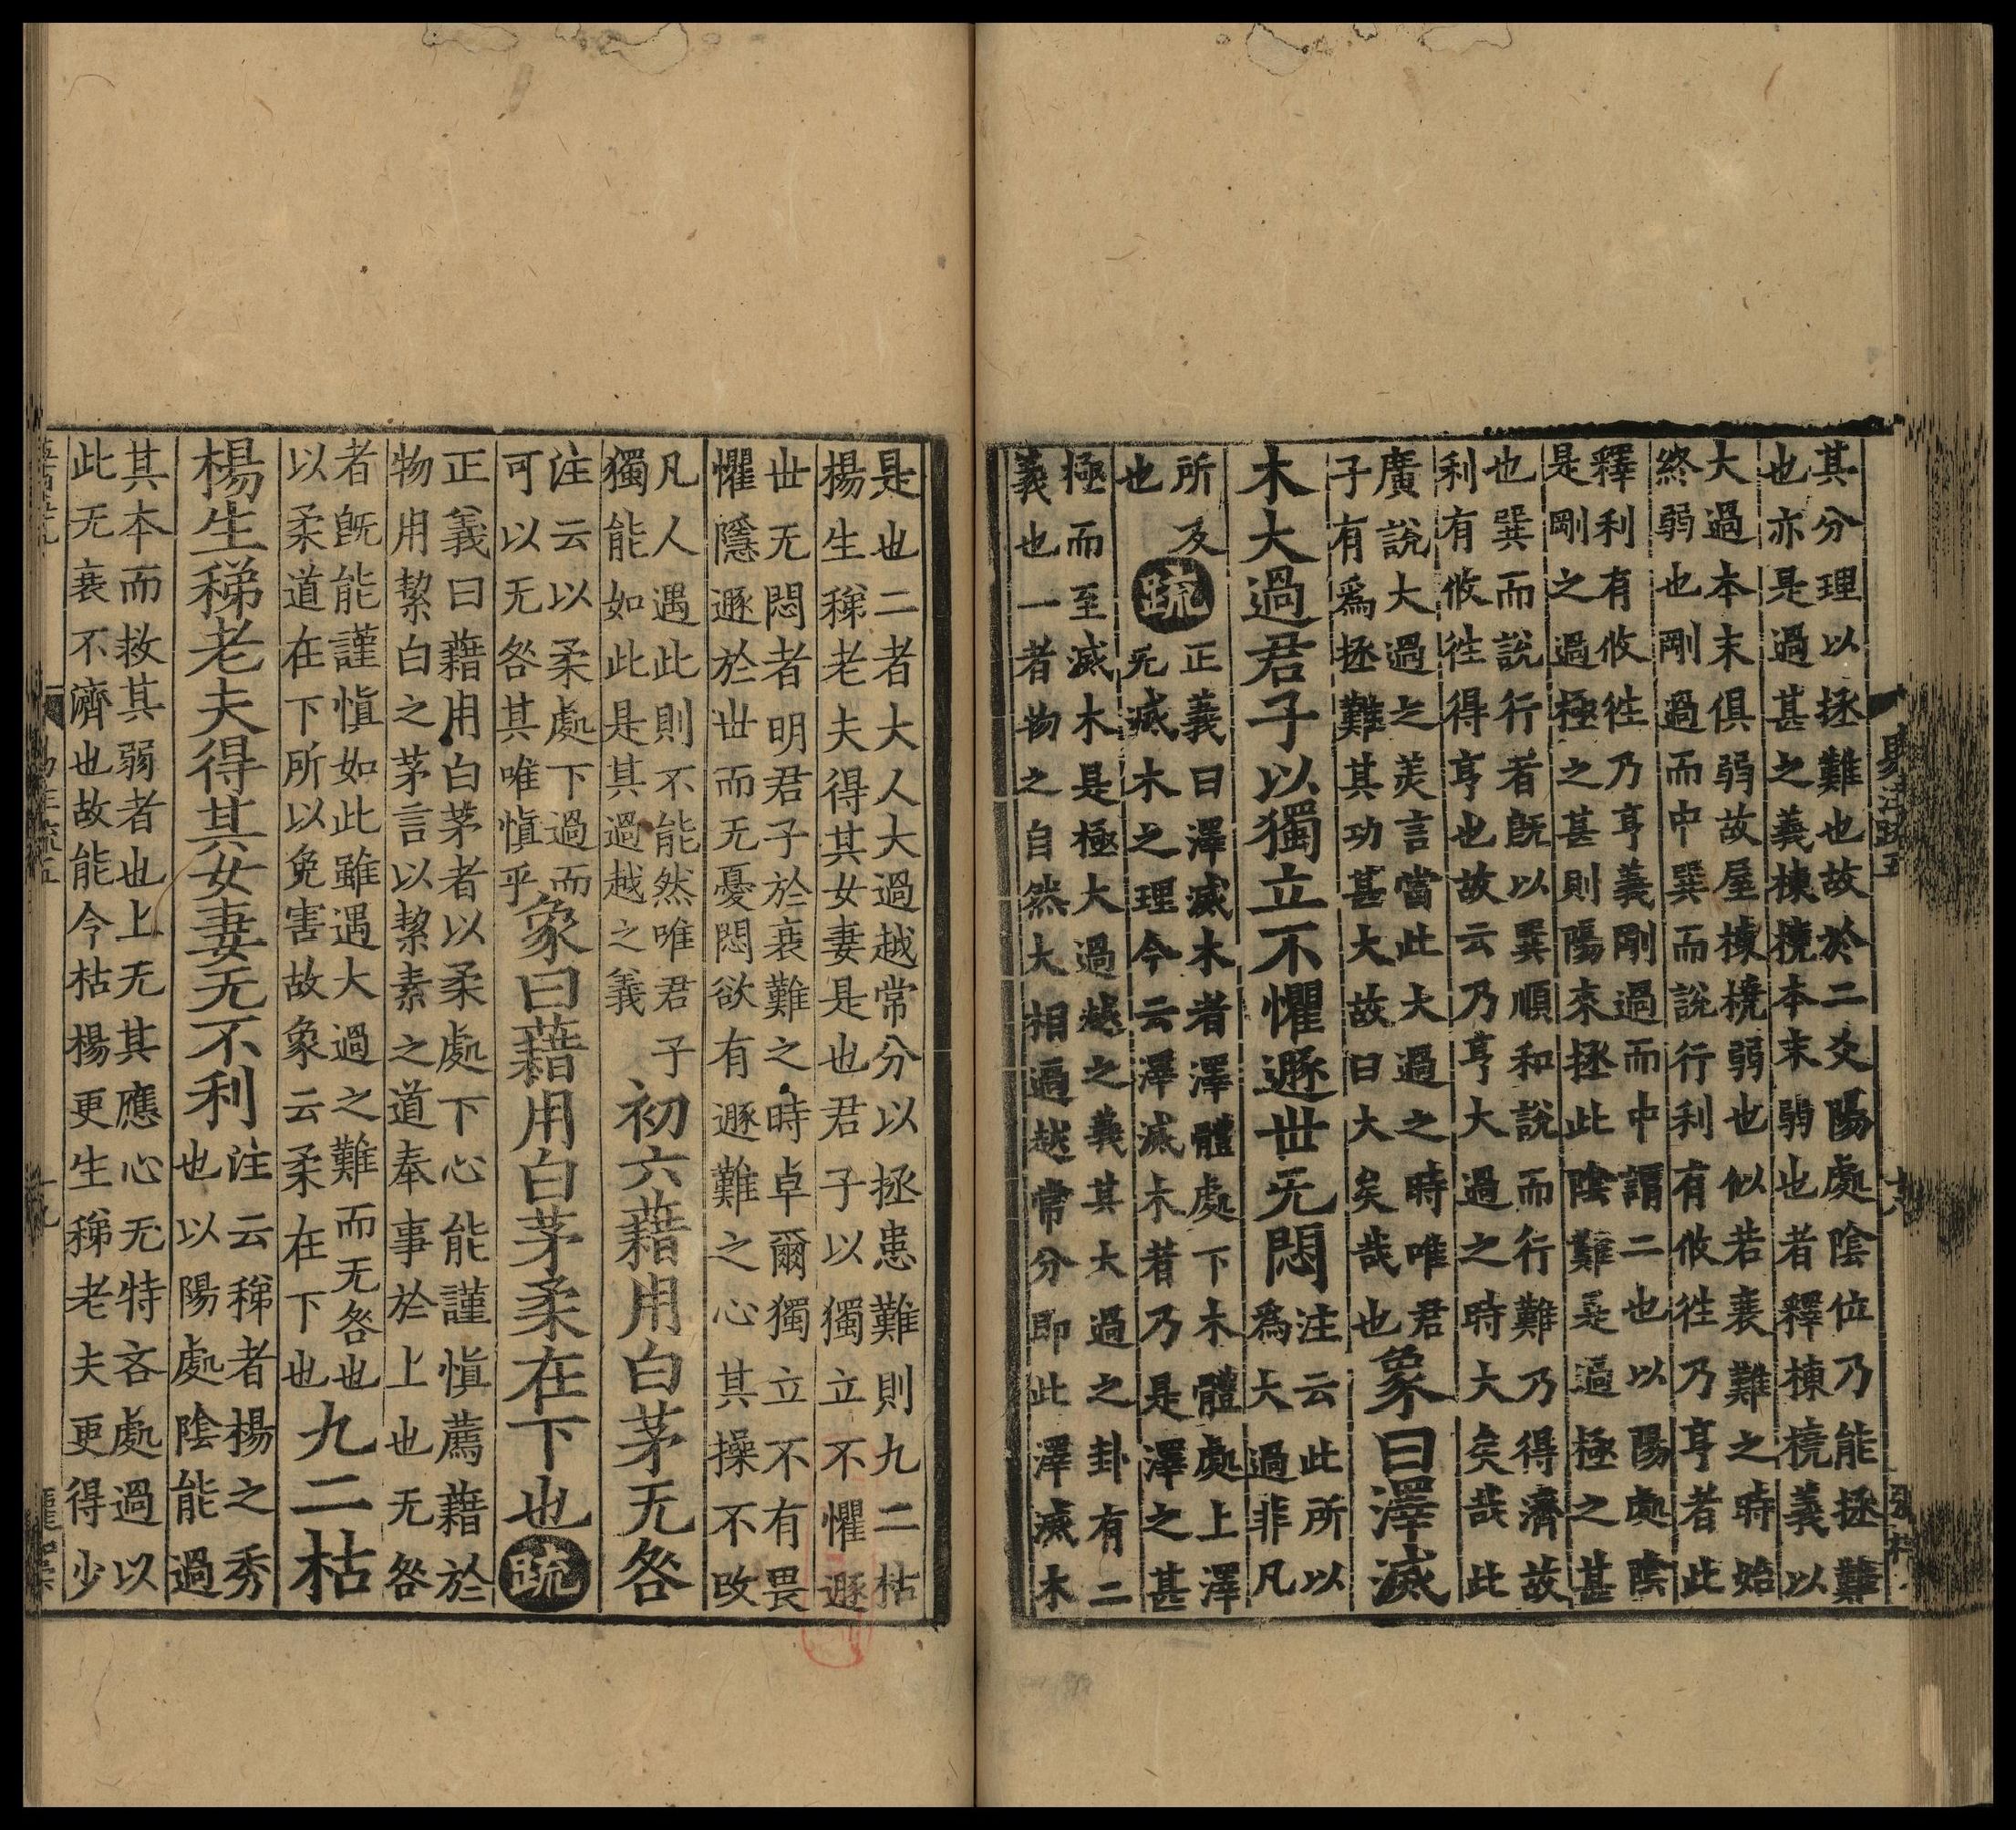 易注疏五
其分理以拯難也故於二爻陽處陰位乃能拯難
也亦是過甚之義棟橈本末弱也者釋棟橈義以
大過本末俱弱故屋棟橈弱也似若衰難之時始
終弱也剛過而中巽而說行利有攸往乃亨者此
釋利有攸往乃亨義剛過而中謂二也以陽處陰
是剛之過極之甚則陽來拯此陰難是過極之甚
也巽而說行者旣以巽順和說而行難乃得濟故
利有攸徃得亨也故云乃亨大過之時大矣哉此
廣說大過之美言當此大過之時唯君
子有爲拯難其功甚大故曰大矣哉也
象曰澤滅
木大過君子以獨立不懼遯世无悶
注云此所以
爲大過非凡
所及
也
疏
正義曰澤滅木者澤體處下木體處上澤
无滅木之理今云澤滅木者乃是澤之甚
極而至滅木是極大過越之義其大過之卦有二
義也一者物之自然大相過越常分即此澤滅木
是也二者大人大過越常分以拯患難則九二枯
楊生稊老夫得其女妻是也君子以獨立不懼遯
世无悶者明君子於衰難之時卓爾獨立不有畏
懼隱遯於世而无憂悶欲有遯難之心其操不改
凡人遇此則不能然唯君子
獨能如此是其過越之義
初六藉用白茅无咎
注云以柔處下過而
可以无咎其唯慎乎
象曰藉用白茅柔在下也
疏
正義曰藉用白茅者以柔處下心能謹慎薦藉於
物用絜白之茅言以絜素之道奉事於上也无咎
者旣能謹慎如此雖遇大過之難而无咎也
以柔道在下所以免害故象云柔在下也
九二枯
楊生稊老夫得其女妻无不利
注云稊者楊之秀
也以陽處陰能過
其本而救其弱者也上无其應心无特吝處過以
此无衰不濟也故能令枯楊更生稊老夫更得少